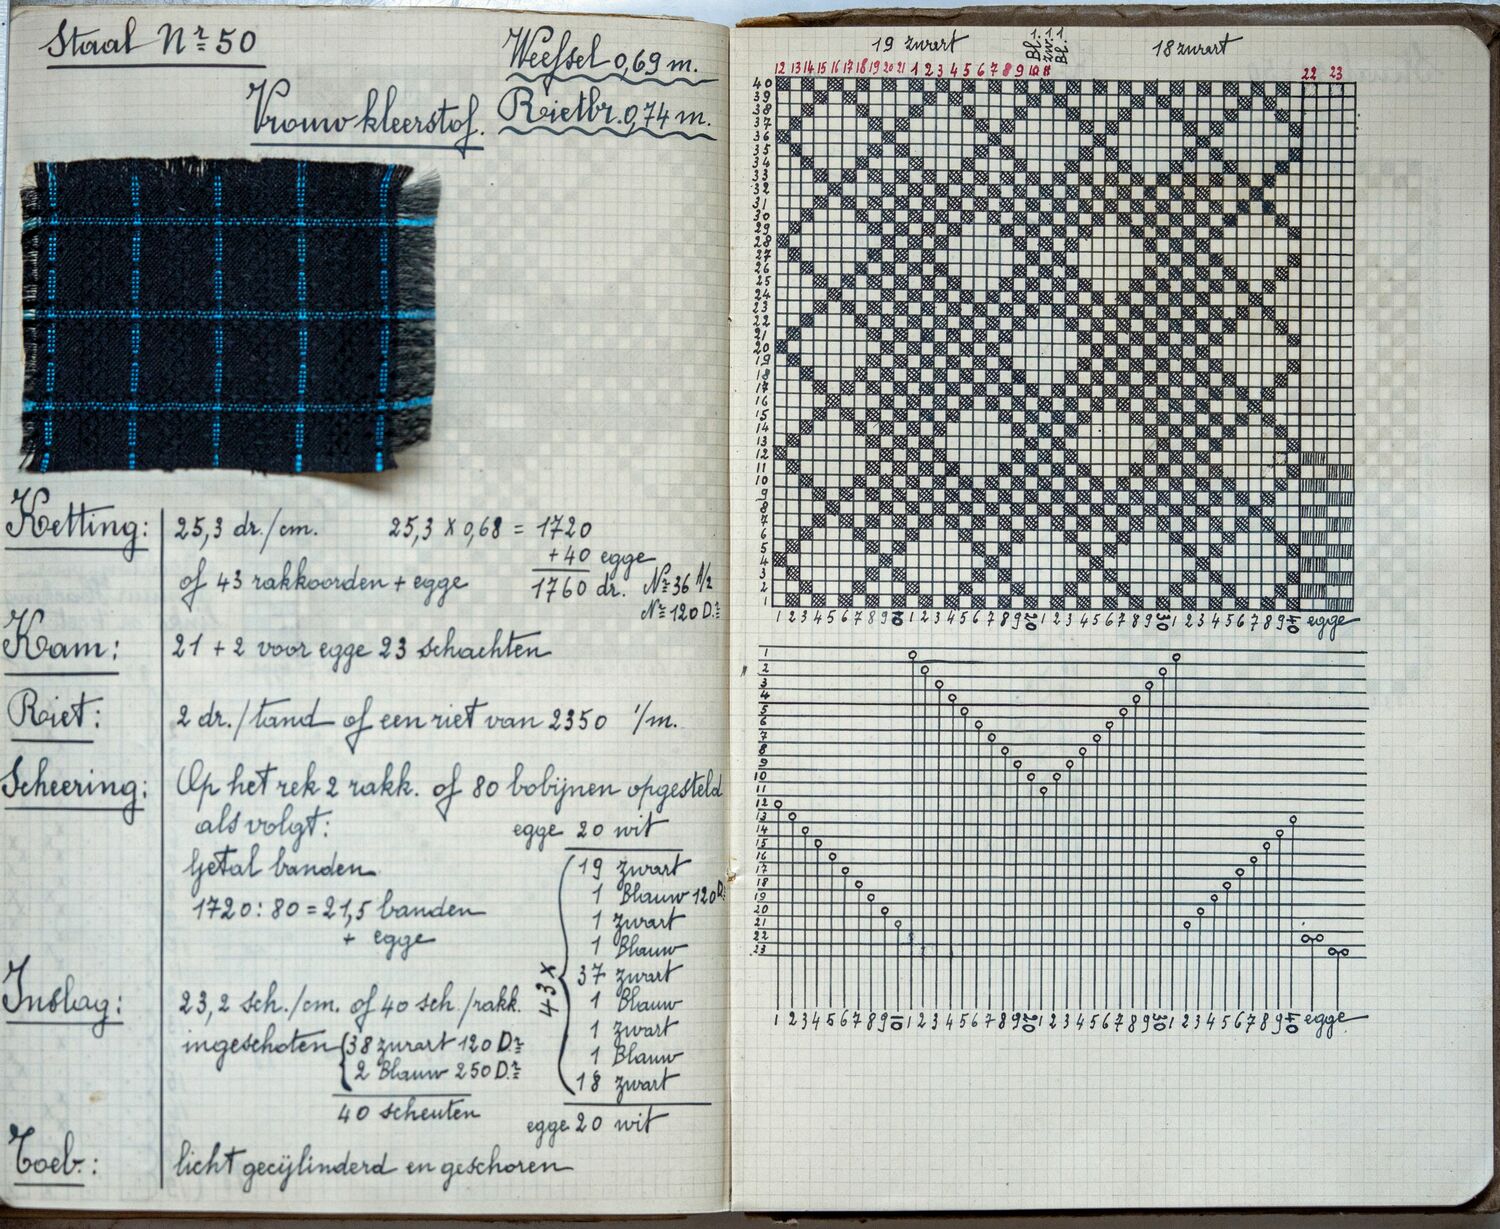 Staal Nr 50
Weefsel 0,69 m.
Vrouwkleerstof.
Rietbr. 0,74 m.
Ketting: 25,3 dr./cm. 25,3 x 0,68 = 1720
+40 egge
of 43 rakkoorden + egge 1760 dr. Nr 36 1/2
Nr 120 Dr
Kam: 21 + 2 voor egge 23 schachten
Riet: 2 dr./tand of een riet van 2350 t/m.
Scheering: Op het rek 2 rakk. of 80 bobijnen opgesteld
als volgt: egge 20 wit
Getal banden 19 zwart
1 Blauw 120 Dr
1720 : 80 = 21,5 banden 1 zwart
+ egge 1 Blauw
43 x 37 zwart
Inslag: 23,2 sch./cm. of 40 sch/rakk. 1 Blauw
1 zwart
ingeschoten 38 zwart 120 Dr
1 Blauw
2 Blauw 250 Dr
18 zwart
40 scheuten
egge 20 wit
licht gecijlinderd en geschoren
19 zwart 1. Bl. 1. zw. 1 Bl. 18 zwart
12 13 14 15 16 17 18 19 20 21 1 2 3 4 5 6 7 8 9 10 11 22 23
40
39
38
37
36
35
34
33
32
31
30
29
28
27
26
25
24
23
22
21
20
19
18
17
16
15
14
13
12
11
10
9
8
7
6
5
4
3
2
1
1 2 3 4 5 6 7 8 9 10 1 2 3 4 5 6 7 8 9 20 1 2 3 4 5 6 7 8 9 30 1 2 3 4 5 6 7 8 9 40 egge
1
2
3
4
5
6
7
8
9
10
11
12
13
14
15
16
17
18
19
20
21
22
23
1 2 3 4 5 6 7 8 9 10 1 2 3 4 5 6 7 8 9 20 1 2 3 4 5 6 7 8 9 30 1 2 3 4 5 6 7 8 9 40 egge